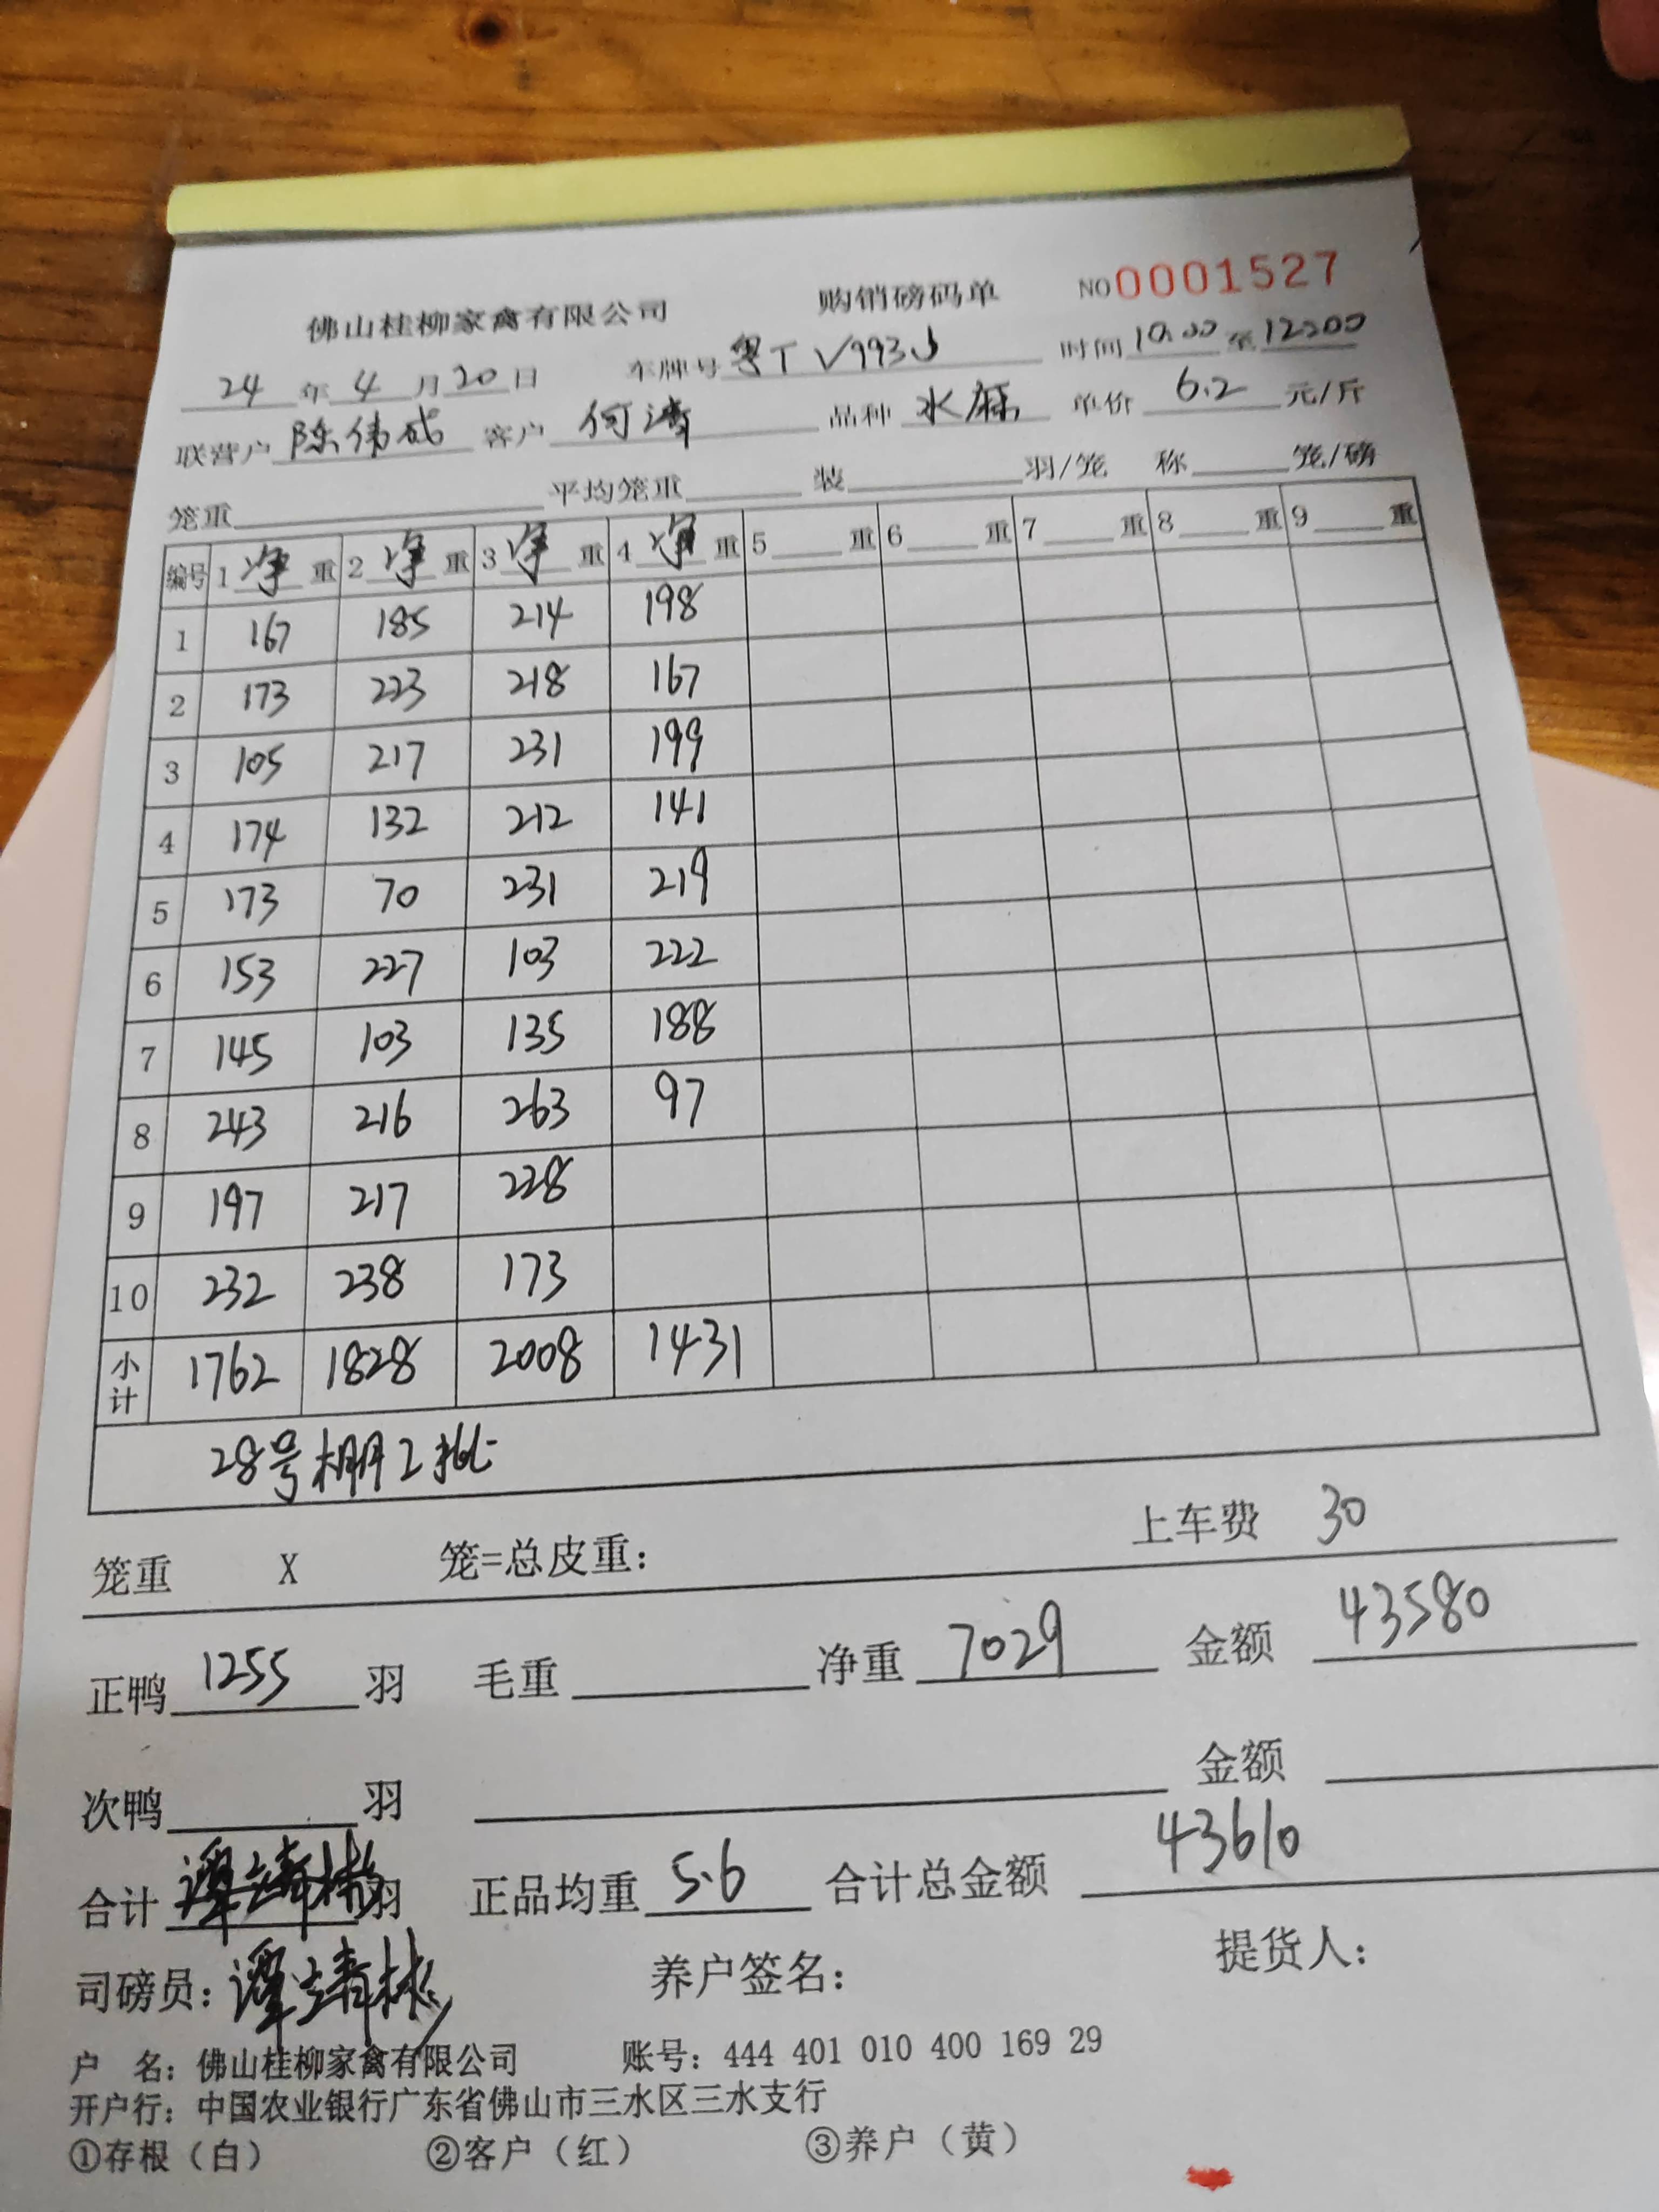 佛山桂柳家禽有限公司 购销磅码单 NO 0001527
24 年 4 月 20 日 车牌号 粤T V993J 时间 10:00 至 12:00
联营户 陈伟成 客户 何涛 品种 水麻 单价 6.2 元/斤
笼重 平均笼重 装 羽/笼 称 笼/磅
编号 1 净 重 2 净 重 3 净 重 4 净 重 5 重 6 重 7 重 8 重 9 重
1 167 185 214 198
2 173 223 218 167
3 105 217 231 199
4 174 132 212 141
5 173 70 231 219
6 153 227 103 222
7 145 103 135 188
8 243 216 263 97
9 197 217 228
10 232 238 173
小计 1762 1828 2008 1431
28号棚2批
笼重 X 笼=总皮重: 上车费 30
正鸭 1255 羽 毛重 净重 7029 金额 43580
次鸭 羽 金额
合计 羽 正品均重 5.6 合计总金额 43610
司磅员: 谭靖彬 养户签名: 提货人:
户 名: 佛山桂柳家禽有限公司 账号: 444 401 010 400 169 29
开户行: 中国农业银行广东省佛山市三水区三水支行
①存根（白） ②客户（红） ③养户（黄）